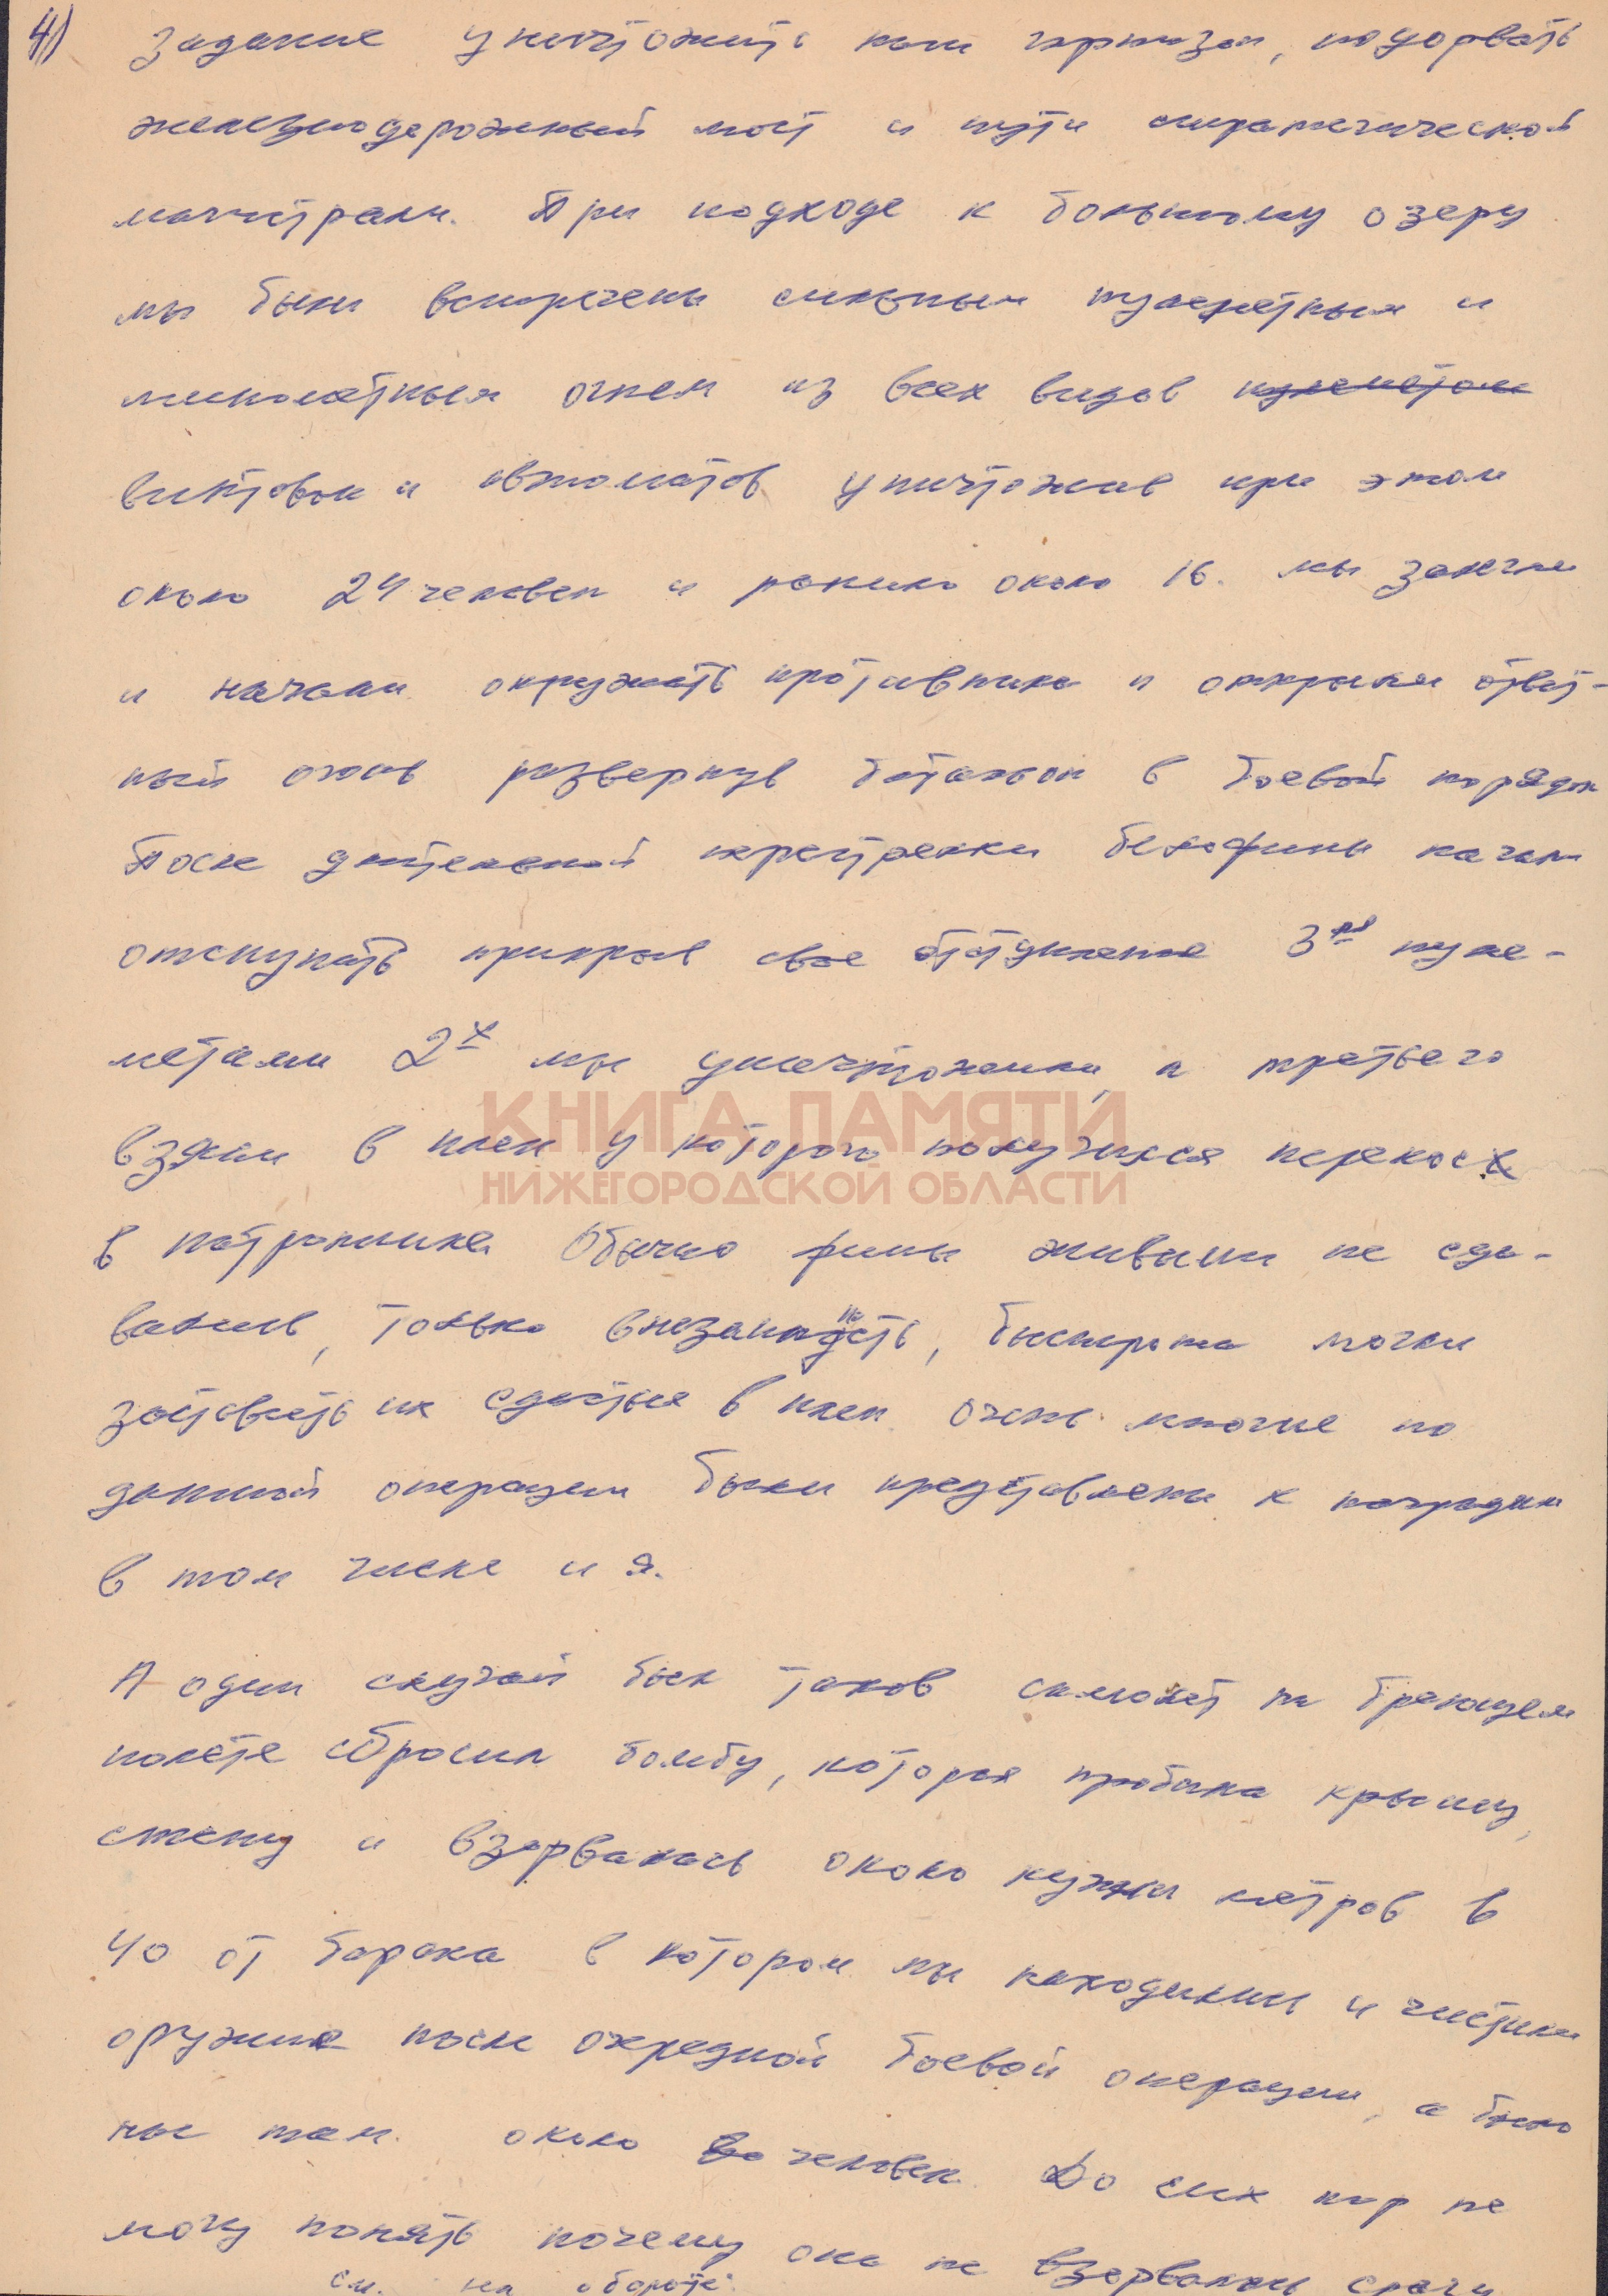 4) задание уничтожить наш гарнизон, подорвать
железнодорожный мост и пути стратегической
магистрали. При подходе к большому озеру
мы были встречены сильным пулеметным и
минометным огнем из всех видов пулеметом
винтовок и автоматов уничтожив при этом
около 24 человек и ранило около 16. мы залегли
и начали окружать противника и открыли ответ-
ный огонь развернув баталион в боевой порядок
После длительной перестрелки белофины начали
отступать прикрыв свое отступление 3мя пуле-
метами 2х мы уничтожили, а третьего
взяли в плен у которого получился перекос
в патроннике Обычно фины живыми не сда-
вались, только внезапность, быстрота могли
заставить их сдаться в плен очень многие по
данной операции были представлены к наградам
в том числе и я.
А один случай был таков самолет на бреющем
полете сбросил бомбу, которая пробила крышу,
стену и взорвалась около кухни метров в
40 от барака в котором мы находились и чистили
оружие после очередной боевой операции, а было
нас там около человек. До сих пор не
могу понять почему она не взорвалась сразу
см. на обороте.
КНИГА ПАМЯТИ
НИЖЕГОРОДСКОЙ ОБЛАСТИ